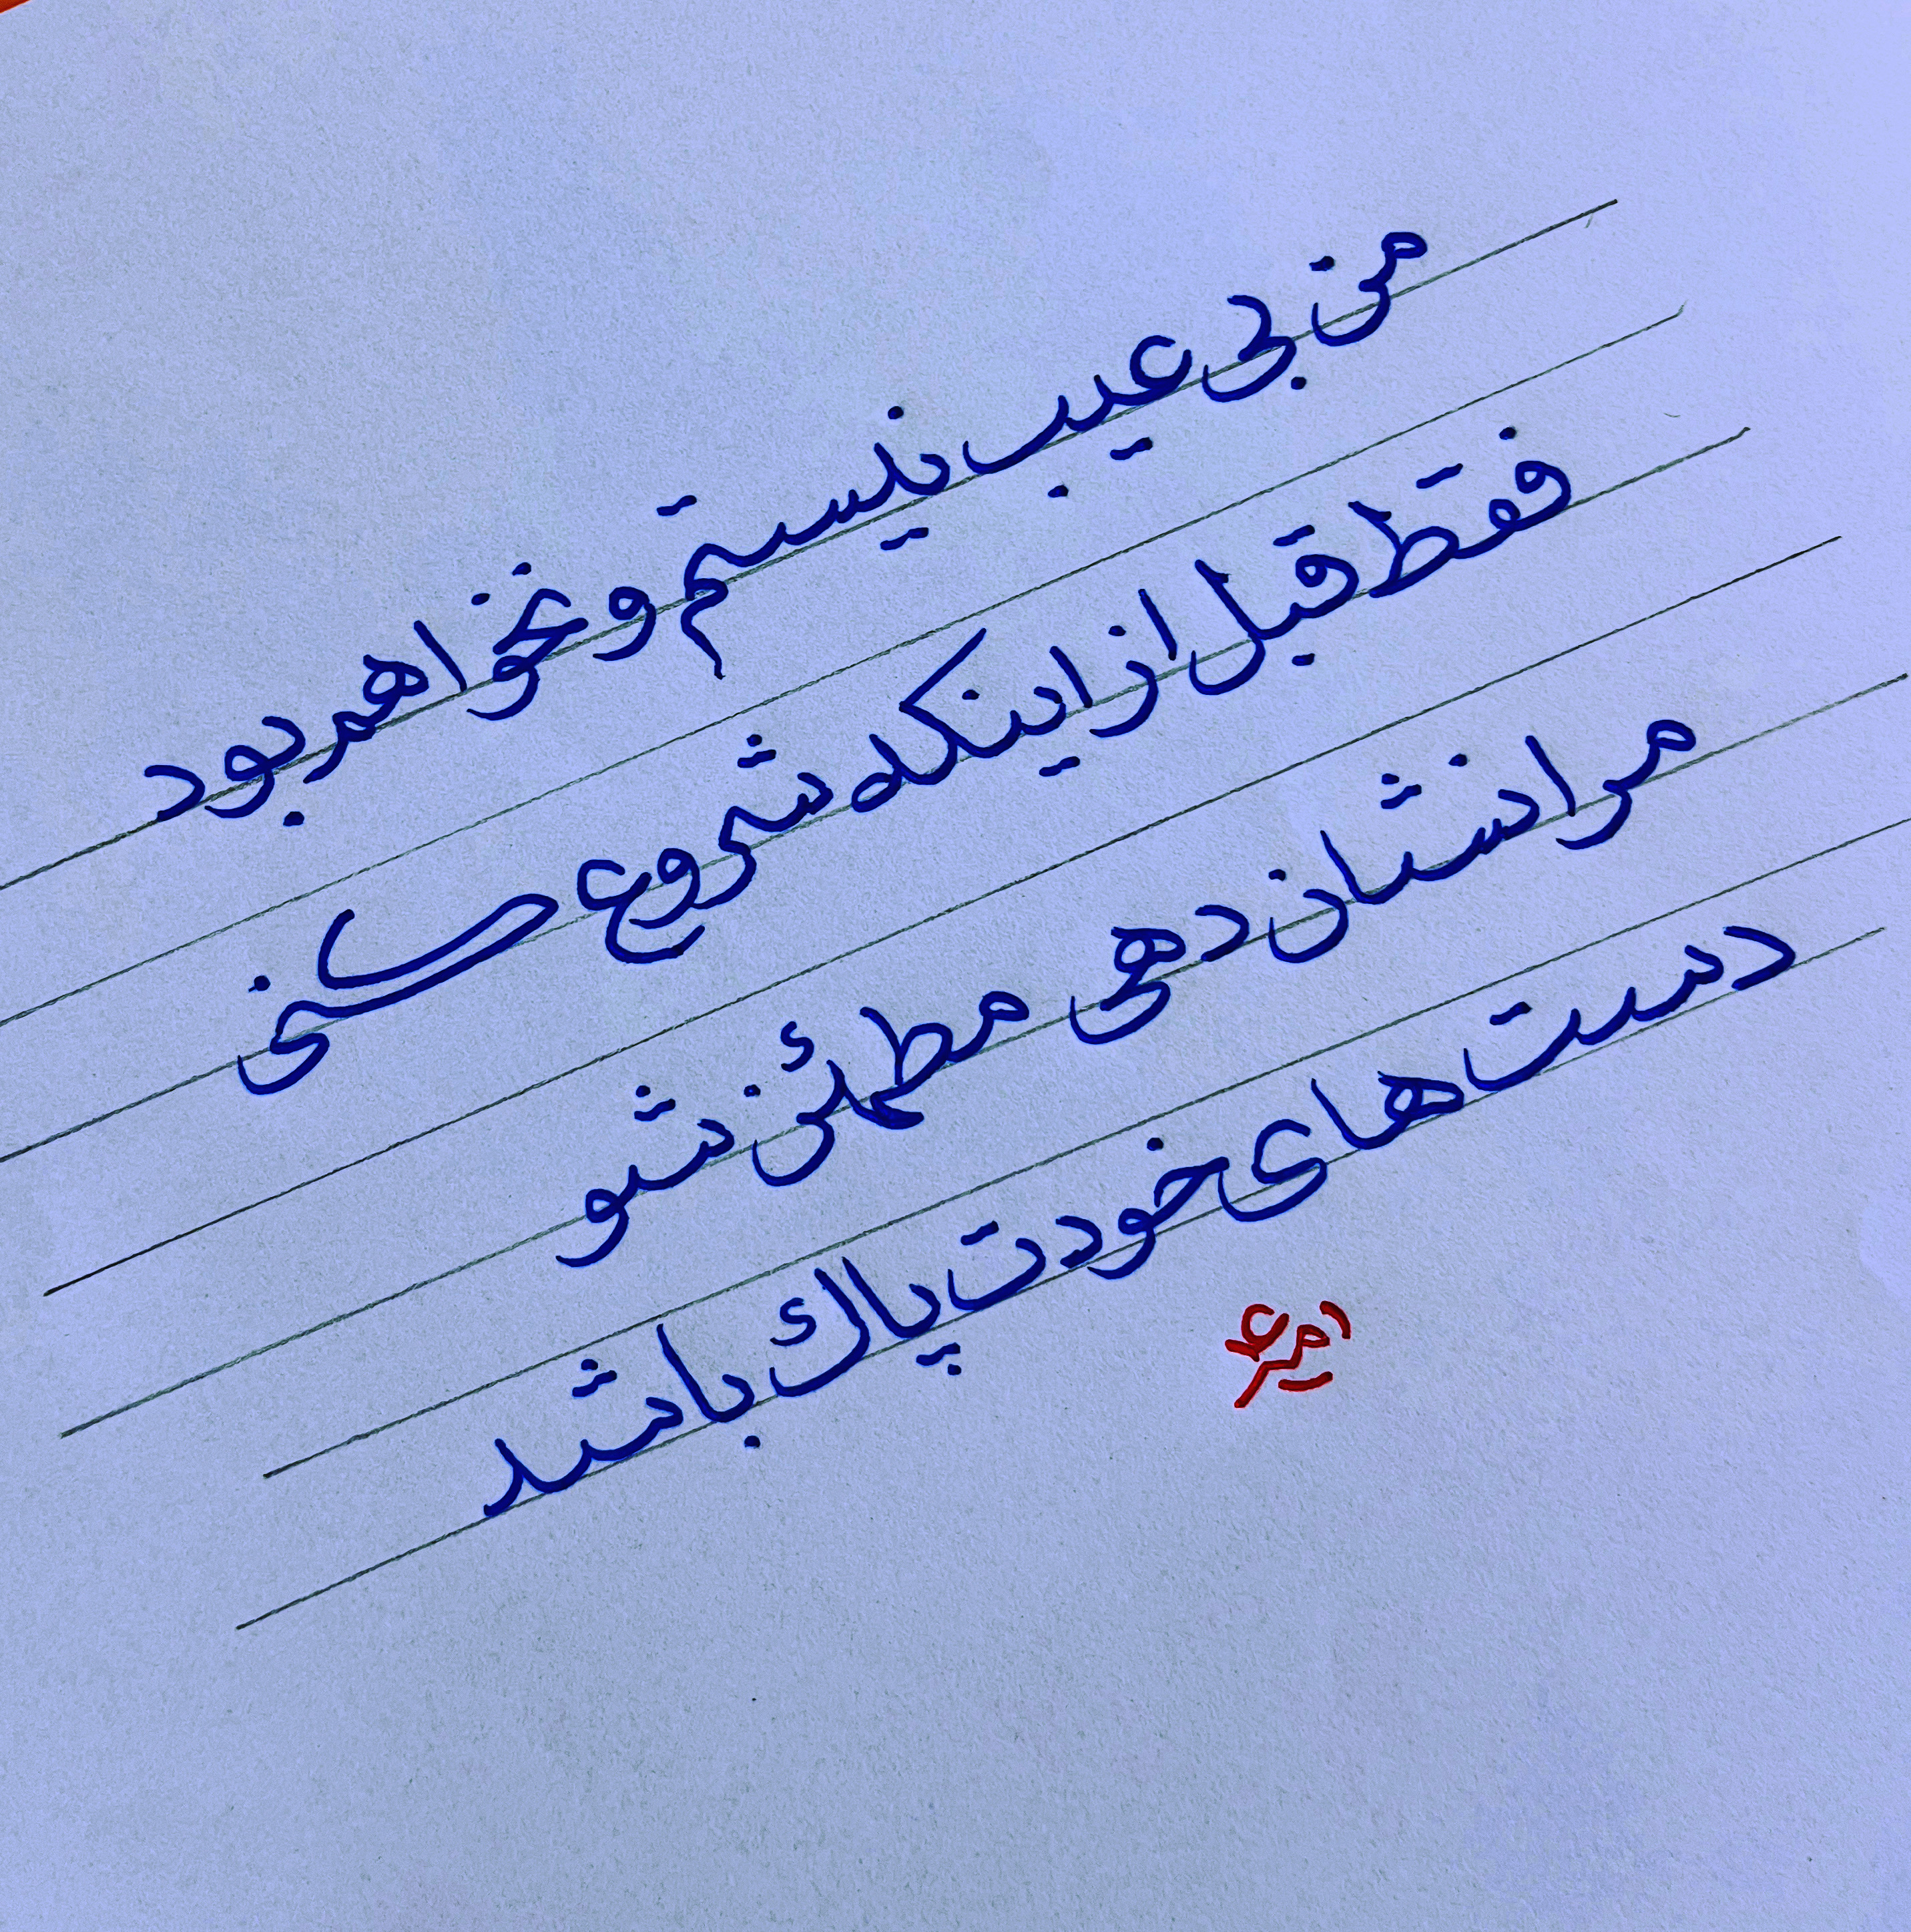 من بی عیب نیستم و نخواهم بود
فقط قبل از اینکه شروع کنی
مرا نشان دهی مطمئن شو
دست های خودت پاک باشد